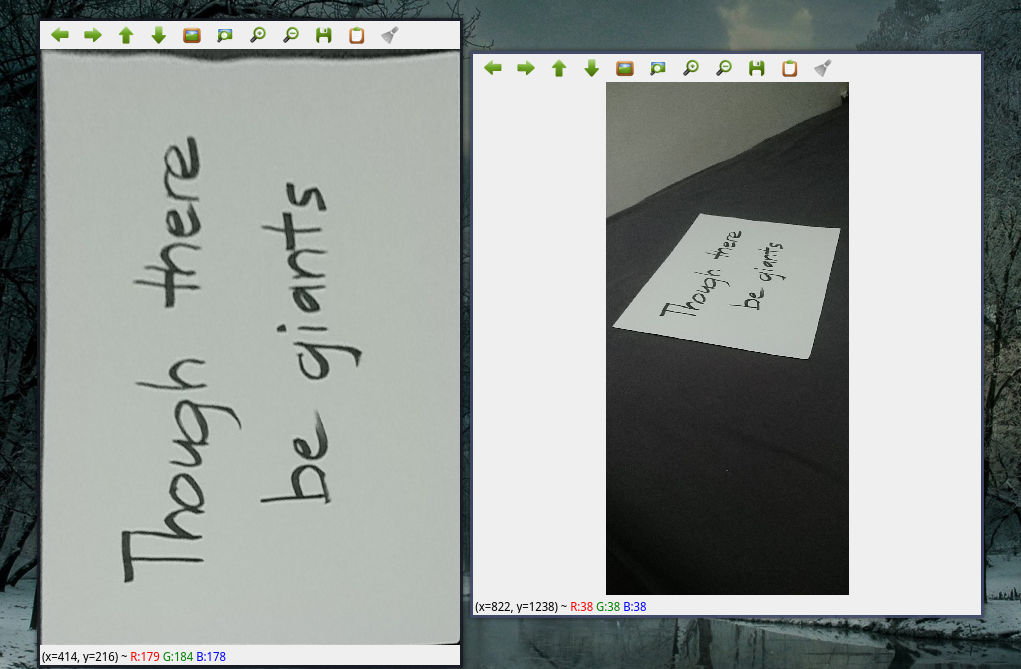 Though there
be giants
(x=414, y=216) ~ R:179 G:184 B:178
Though there
be giants
(x=822, y=1238) ~ R:38 G:38 B:38